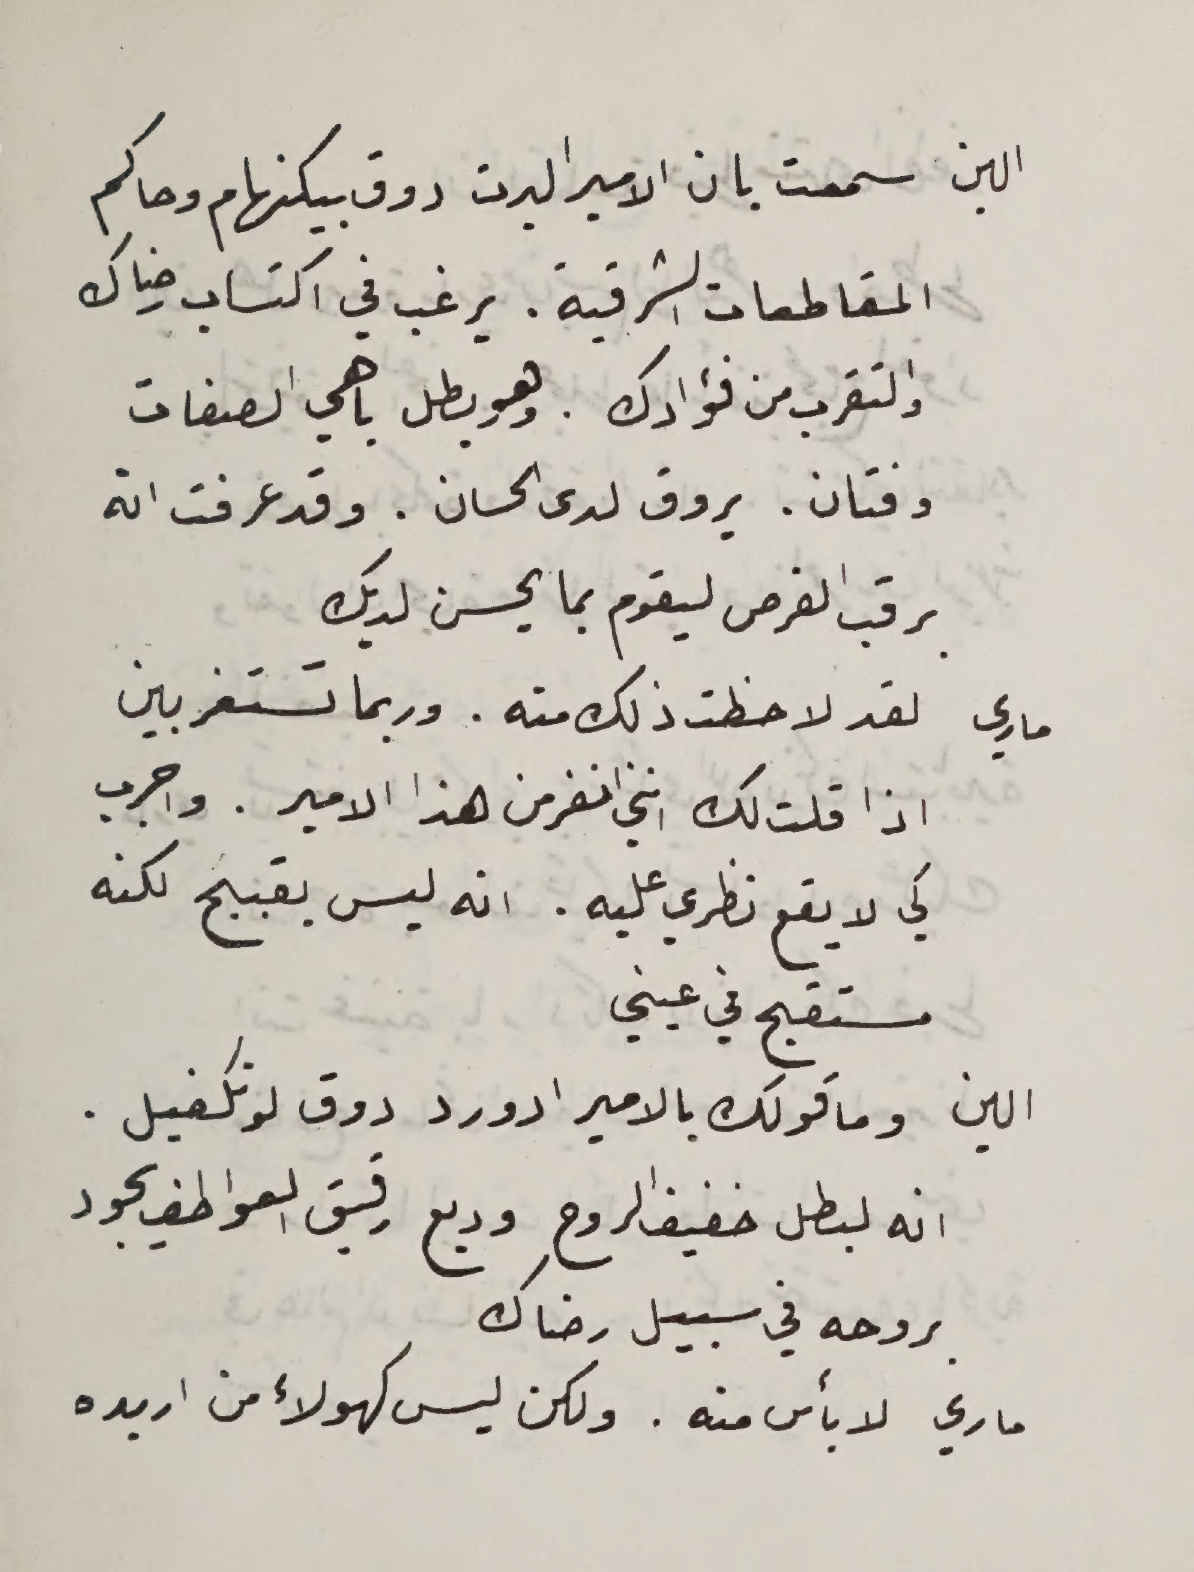 الين سمعت بان الامير البرت دوق بيكنهام وحاكم
المقاطعات الشرقية . يرغب في اكتساب رضاك
والتقرب من فؤادك . وهو بطل باهي الصفات
وفتان . يروق لدى الحسان . وقد عرفت انه
يرقب الفرص ليقوم بما يحسن لديك
ماري لقد لاحظت ذلك منه . وربما تستغربين
اذا قلت لك انني انفر من هذا الامير . واهرب
كي لا يقع نظري عليه . انه ليس بقبيح لكنه
مستقبح في عيني
الين وما قولك بالامير ادورد دوق لونكفيل .
انه لبطل خفيف الروح وديع رقيق العواطف يجود
بروحه في سبيل رضاك
ماري لا بأس منه . ولكن ليس كهولاء من اريده